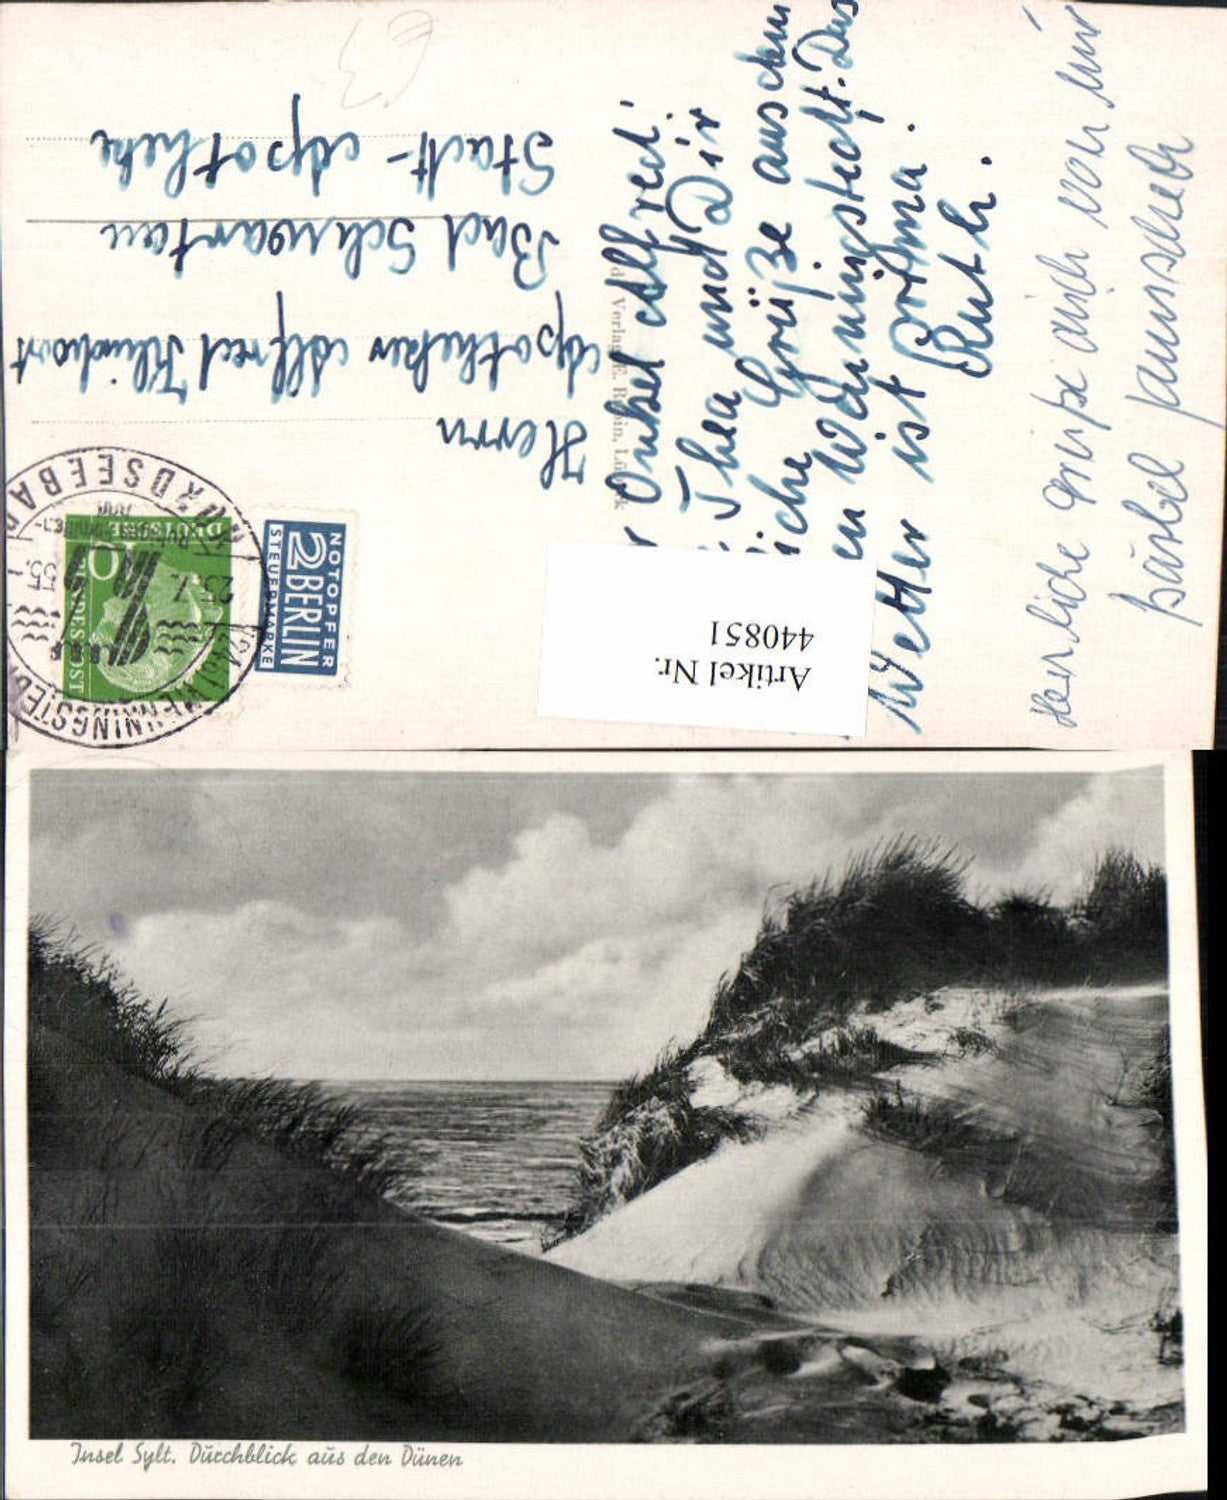 Herrn
Apotheker Alfred
Bad Schwartau
Stadt-Apotheke
Onkel Alfred!
Thea und Dir
Grüße aus dem
Wenningstedt. Das
Wetter ist prima.
Ruth.
Herzliche Grüße auch von mir
Bärbel
d Verlag E. Rubin, Lübeck
NOTOPFER
2 BERLIN
STEUERMARKE
DEUTSCHE
BUNDESPOST
10
NORDSEEBAD
WENNINGSTEDT
23.7.55
Artikel Nr.
440851
Insel Sylt. Durchblick aus den Dünen